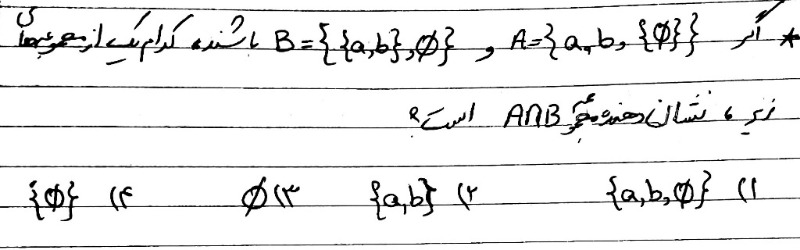 * اگر A={a,b,{∅}} و B={{a,b},∅} باشند، کدام یک از مجموعه‌های
زیر، نشان دهنده مجموعه A∩B است؟
۱) {a,b,∅} ۲) {a,b} ۳) ∅ ۴) {∅}